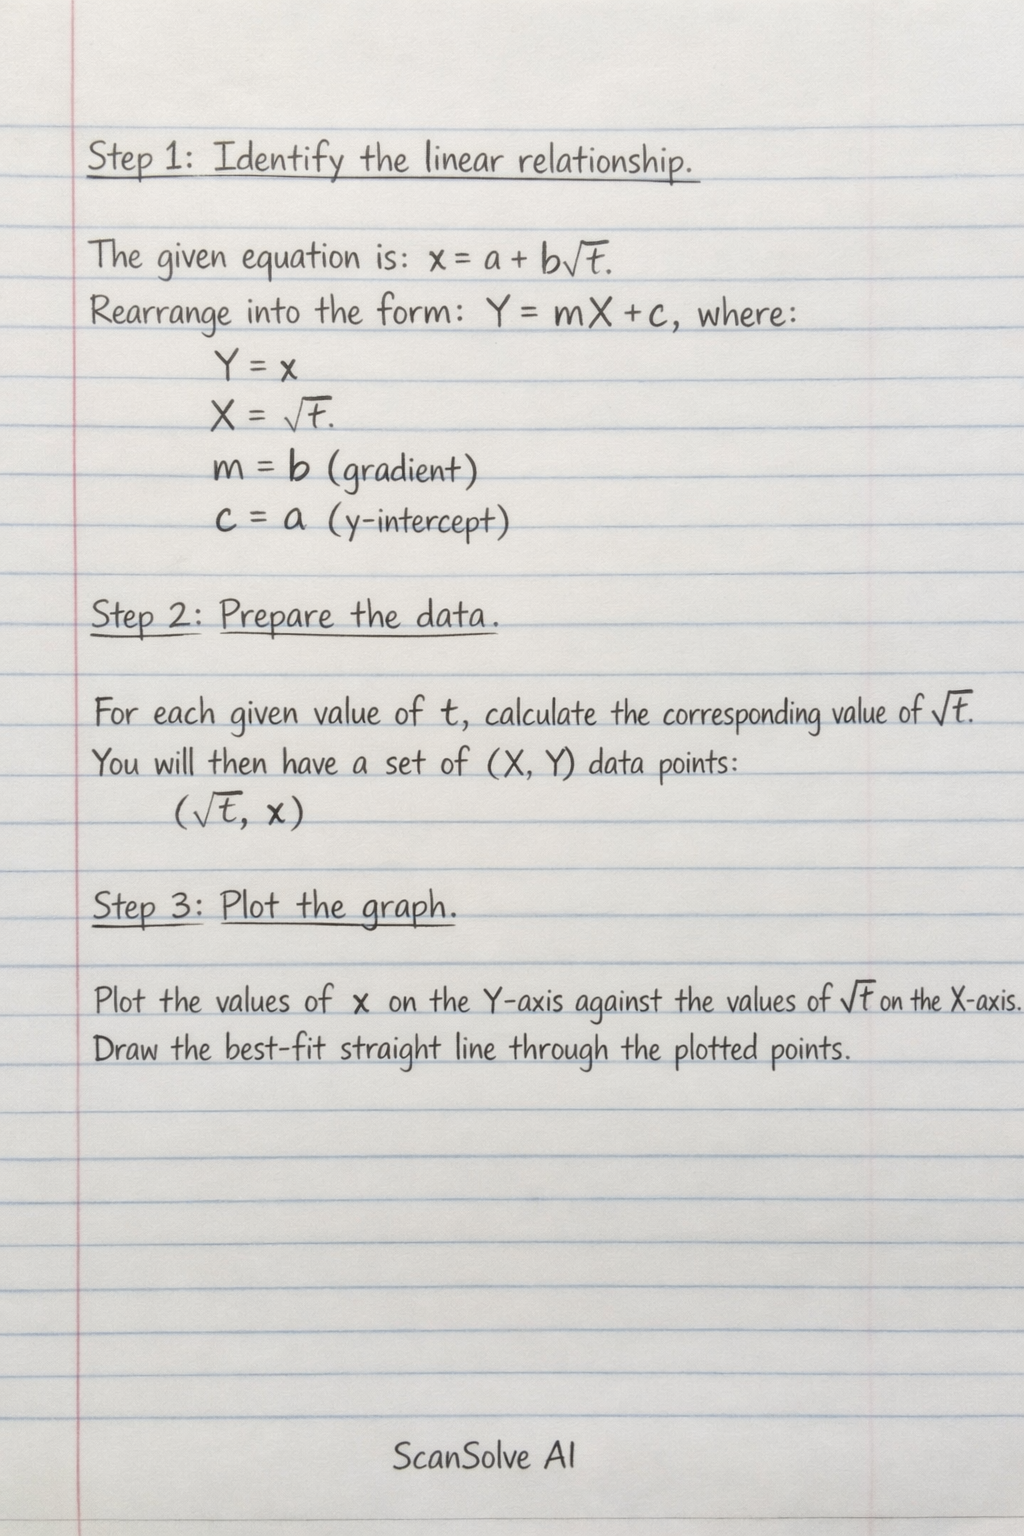 Step 1: Identify the linear relationship.
The given equation is: x = a + b√t.
Rearrange into the form: Y = mX + c, where:
Y = x
X = √t.
m = b (gradient)
c = a (y-intercept)
Step 2: Prepare the data.
For each given value of t, calculate the corresponding value of √t.
You will then have a set of (X, Y) data points:
(√t, x)
Step 3: Plot the graph.
Plot the values of x on the Y-axis against the values of √t on the X-axis.
Draw the best-fit straight line through the plotted points.
ScanSolve AI